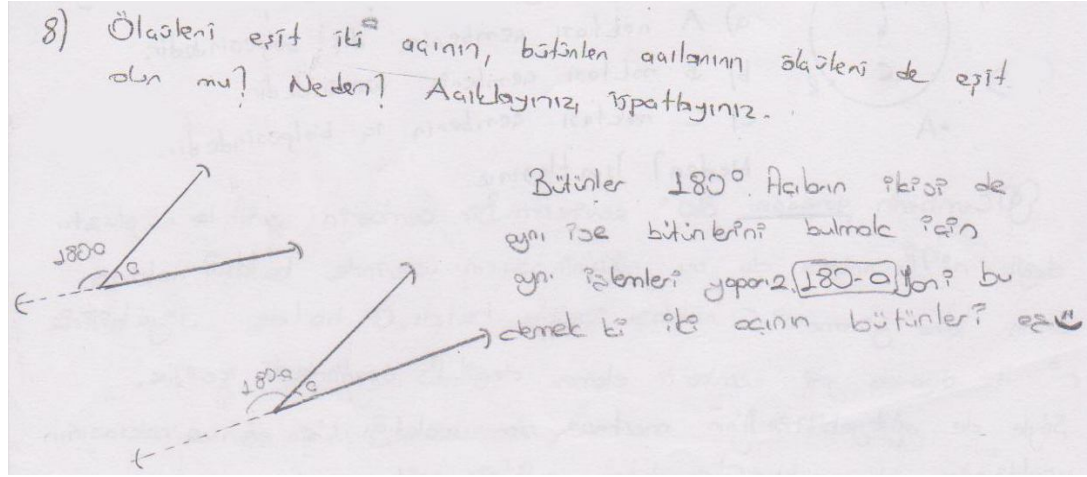 8) Ölçüleri eşit iki açının, bütünler açılarının ölçüleri de eşit
olur mu? Neden? Açıklayınız, ispatlayınız.
Bütünler 180°. Açıların ikisi de
aynı ise bütünlerini bulmak için
aynı işlemleri yaparız. 180-a Yani bu
demek ki iki açının bütünleri eş
180-a a
180-a a